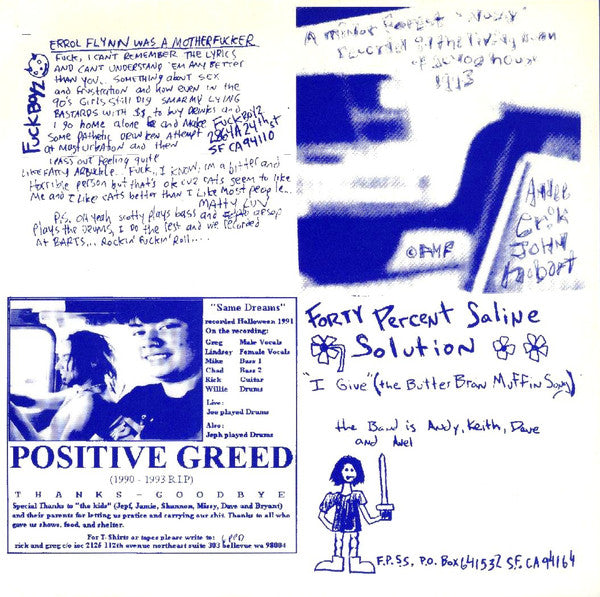 ERROL FLYNN WAS A MOTHERFUCKER
FUCK, I CAN'T REMEMBER THE LYRICS
AND CANT UNDERSTAND 'EM ANY BETTER
THAN YOU.. SOMETHING ABOUT SEX
and frustration and how even in the
90's Girls still Dig SMARMY LYING
BASTARDS WITH $$ to buy Drinks and
I go home alone and make
Some Pathetic Drunken Attempt
at Masturbation and then
I PASS out feeling quite
LIKE FATTY ARBUCKLE.. FUCK.. I KNOW, im a bitter and
Horrible person but thats ok cuz CATS seem to like
Me and I like CATS better than I like Most people..
MATTY LUV
P.S. Oh yeah scotty plays bass and aesop
plays the DRUMS, I do the rest and we recorded
AT BARTS... Rockin' Fuckin' Roll....
FUCKBOYZ
FUCKBOYZ
2861A 24th st
SF CA 94110
A minor forest
recorded at the
of
1993
©AMF
Andee
Erik
JOHN
"Same Dreams"
recorded Halloween 1991
On the recording:
Greg Male Vocals
Lindsey Female Vocals
Mike Bass 1
Chad Bass 2
Rick Guitar
Willie Drums
Live:
Joe played Drums
Also:
Jeph played Drums
POSITIVE GREED
(1990 - 1993 R.I.P)
THANKS-GOODBYE
Special Thanks to "the kids" (Jepf, Jamie, Shannon, Missy, Dave and Bryant)
and their parents for letting us pratice and carrying our shit. Thanks to all who
gave us shows, food, and shelter.
For T-Shirts or tapes please write to:
rick and greg c/o inc 2126 112th avenue northeast suite 303 bellevue wa 98004
FORTY Percent Saline
Solution
"I Give" (the Butter Bran Muffin Song)
the Band is Andy, Keith, Dave
and Axel
F.P.S.S. P.O. Box 641532 S.F. CA 94164